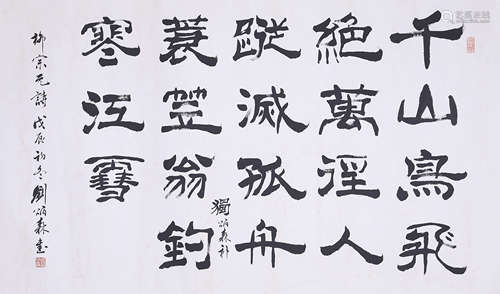 千山鳥飛
絕萬徑人
蹤滅孤舟
蓑笠翁釣
獨頌森補
寒江雪
柳宗元詩戊辰初冬劉頌森書